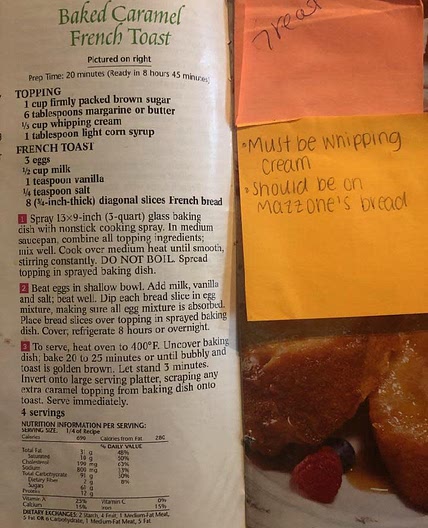 Baked Caramel
French Toast
Pictured on right
Prep Time: 20 minutes (Ready in 8 hours 45 minutes)
TOPPING
1 cup firmly packed brown sugar
6 tablespoons margarine or butter
⅓ cup whipping cream
1 tablespoon light corn syrup
FRENCH TOAST
3 eggs
½ cup milk
1 teaspoon vanilla
¼ teaspoon salt
8 (¾-inch-thick) diagonal slices French bread
1 Spray 13×9-inch (3-quart) glass baking
dish with nonstick cooking spray. In medium
saucepan, combine all topping ingredients;
mix well. Cook over medium heat until smooth,
stirring constantly. DO NOT BOIL. Spread
topping in sprayed baking dish.
2 Beat eggs in shallow bowl. Add milk, vanilla
and salt; beat well. Dip each bread slice in egg
mixture, making sure all egg mixture is absorbed.
Place bread slices over topping in sprayed baking
dish. Cover; refrigerate 8 hours or overnight.
3 To serve, heat oven to 400°F. Uncover baking
dish; bake 20 to 25 minutes or until bubbly and
toast is golden brown. Let stand 3 minutes.
Invert onto large serving platter, scraping any
extra caramel topping from baking dish onto
toast. Serve immediately.
4 servings
NUTRITION INFORMATION PER SERVING:
SERVING SIZE: 1/4 of Recipe
Calories 690 Calories from Fat 280
% DAILY VALUE
Total Fat 31 g 48%
Saturated
Cholesterol
Sodium
Total Carbohydrate
Dietary Fiber
Sugars
Protein
Vitamin A 25% Vitamin C 0%
Calcium 15% Iron 15%
DIETARY EXCHANGES: 2 Starch, 4 Fruit, 1 Medium-Fat Meat,
5 Fat OR 6 Carbohydrate, 1 Medium-Fat Meat, 5 Fat
Treat
•Must be whipping
cream
•Should be on
Mazzone's bread